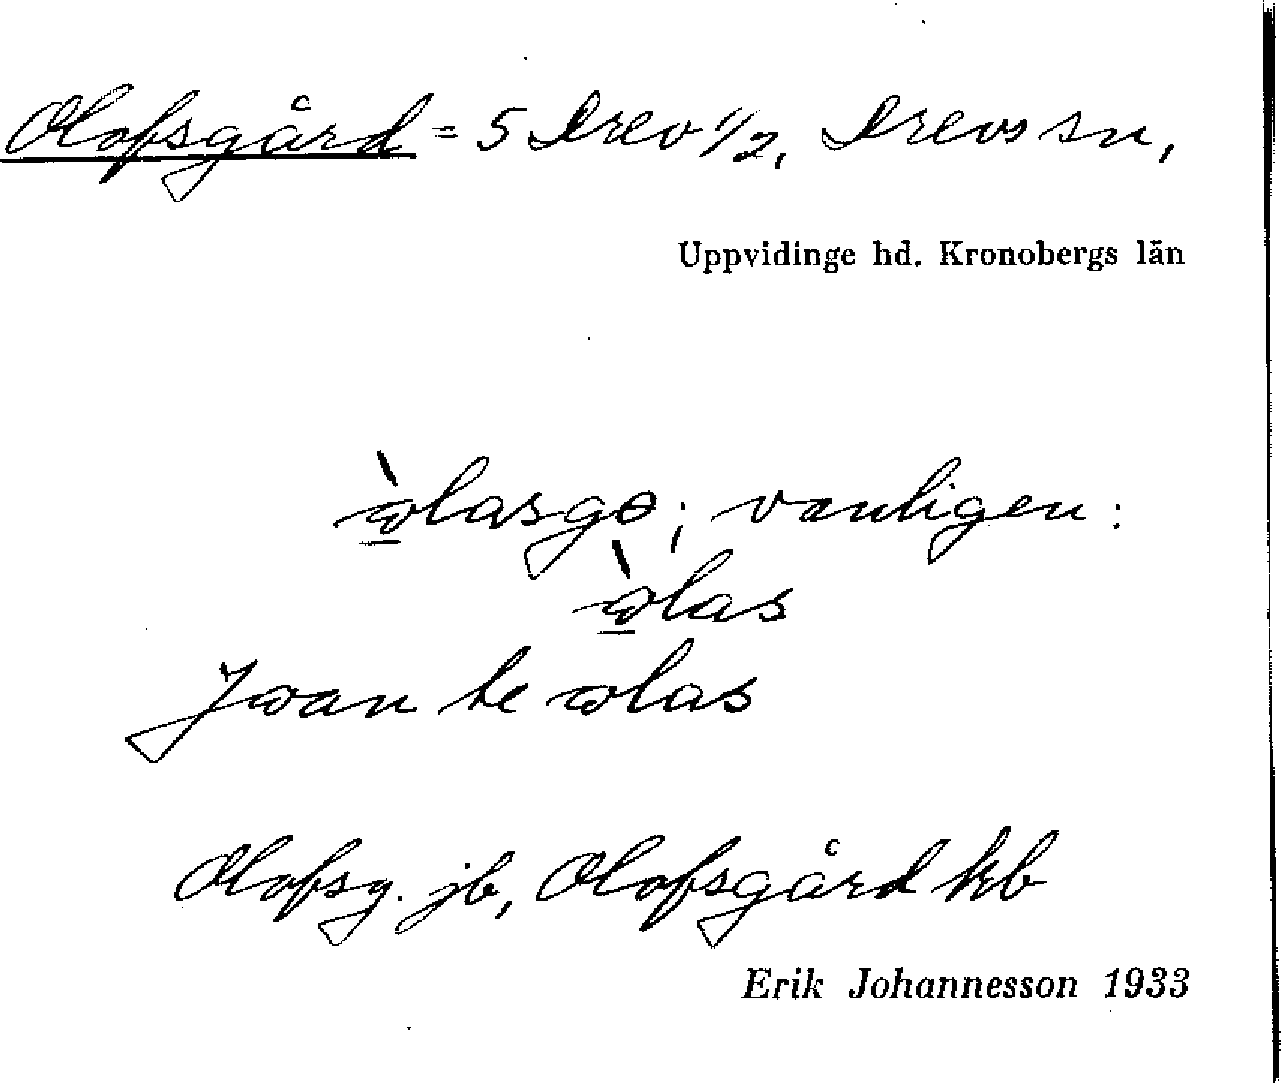 Olofsgård = 5 Drev 1/2, Drevs sn,
Uppvidinge hd. Kronobergs län
òlasgo; vanligen:
òlas
Jwan te olas
Olofsg. jb, Olofsgård kb
Erik Johannesson 1933